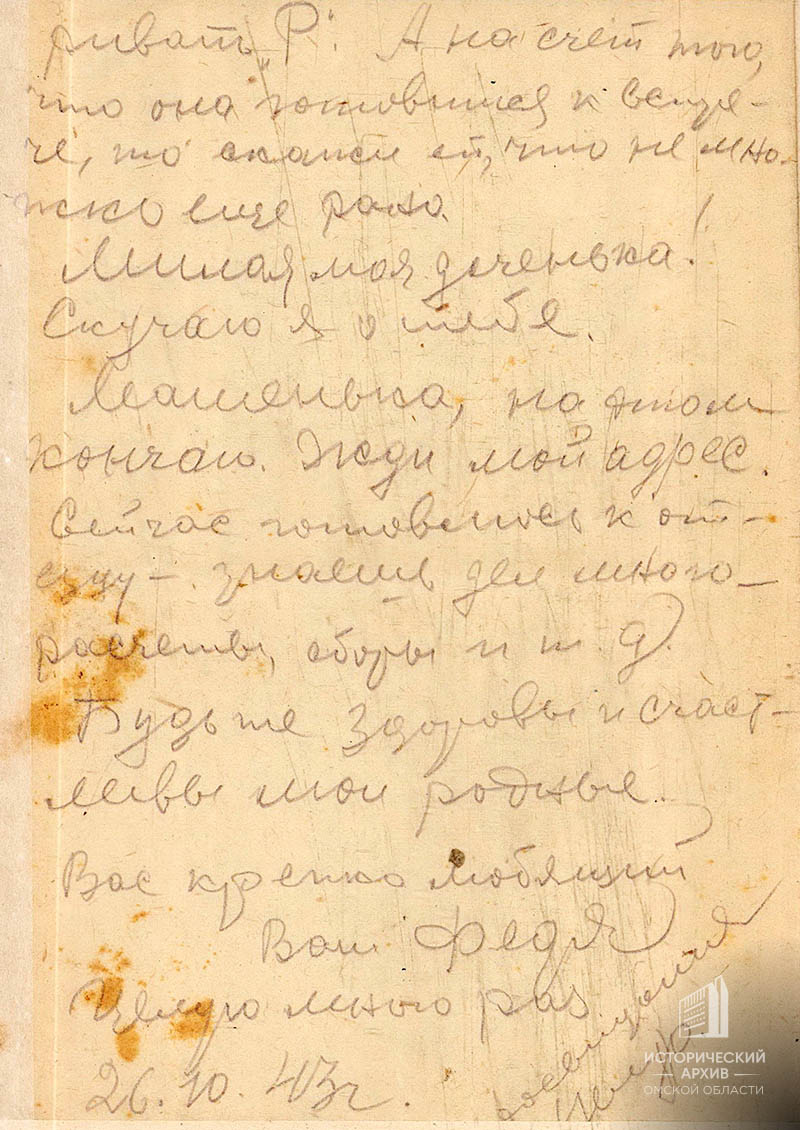 ривать „Р“. А на счет того,
что она готовится к встре-
че, то скажи ей, что не мно-
жко еще рано.
Милая моя доченька!
Скучаю я о тебе.
Машенька, на этом
кончаю. Жди мой адрес.
Сейчас готовлюсь к от-
езду – знаешь дел много –
расчеты, сборы и т. д.
Будьте здоровы и счаст-
ливы мои родные.
Вас крепко любящий
Ваш Федя
Целую много раз
26.10.43 г.
до свидания
Целую
ИСТОРИЧЕСКИЙ
АРХИВ
ОМСКОЙ ОБЛАСТИ